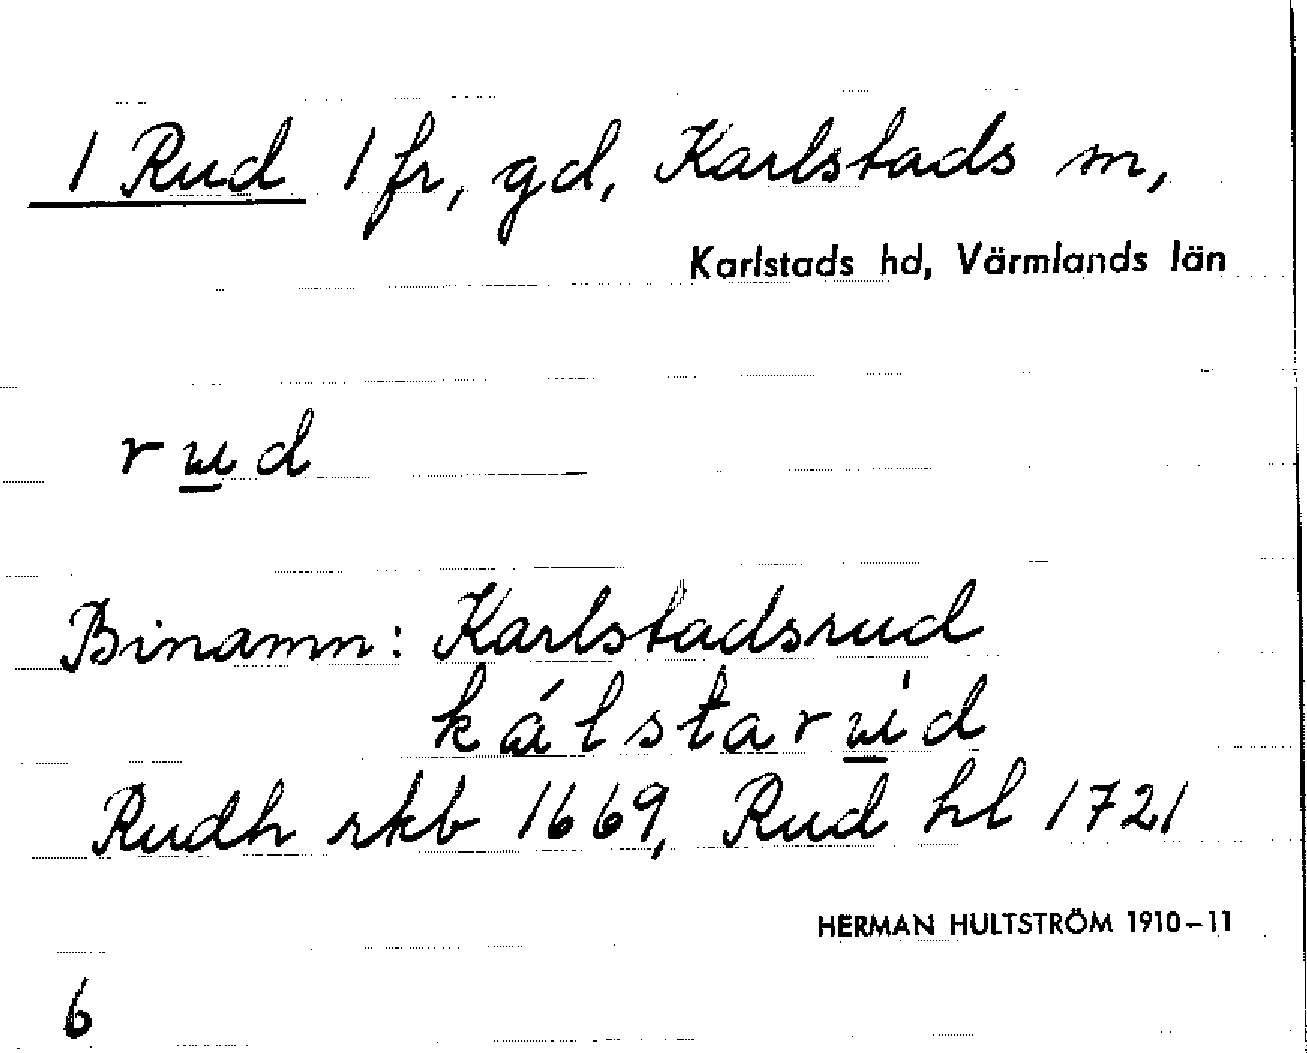 1 Rud 1 fr, gd, Karlstads m,
Karlstads hd, Värmlands län
rud
Binamn: Karlstadsrud
kálstarúd
Rudh rkb 1669, Rud hl 1721
HERMAN HULTSTRÖM 1910-11
6